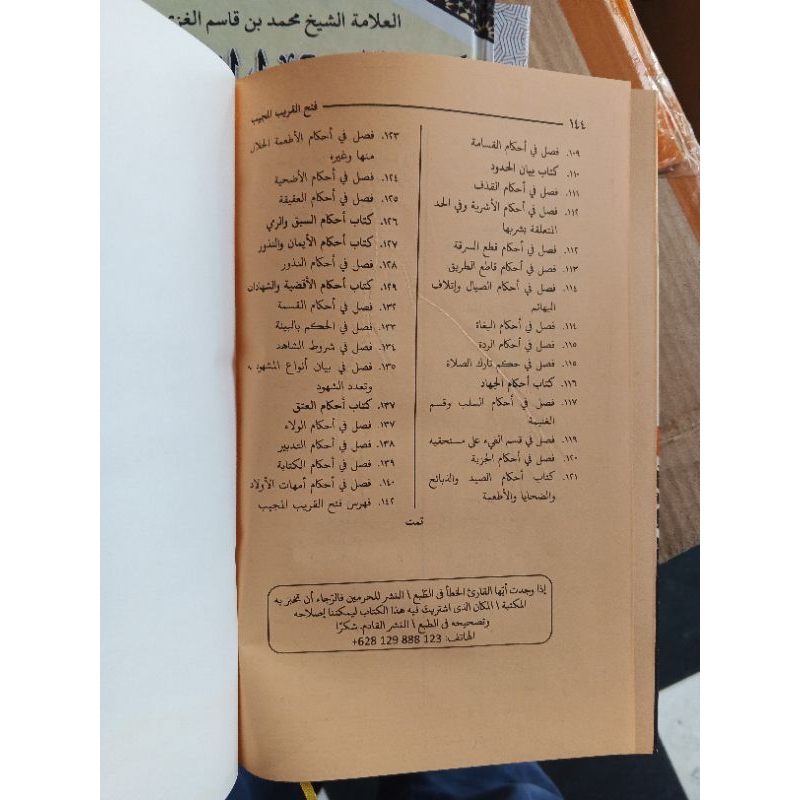 العلامة الشيخ محمد بن قاسم الغزي
١٤٤
فتح القريب المجيب
١٠٩. فصل في أحكام القسامة
١١٠. كتاب بيان الحدود
١١١. فصل في أحكام القذف
١١٢. فصل في أحكام الأشربة وفي الحد
المتعلقة بشربها
١١٢. فصل في أحكام قطع السرقة
١١٣. فصل في أحكام قاطع الطريق
١١٤. فصل في أحكام الصيال وإتلاف
البهائم
١١٤. فصل في أحكام البغاة
١١٥. فصل في أحكام الردة
١١٥. فصل في حكم تارك الصلاة
١١٦. كتاب أحكام الجهاد
١١٧. فصل في أحكام السلب وقسم
الغنيمة
١١٩. فصل في قسم الفيء على مستحقيه
١٢٠. فصل في أحكام الجزية
١٢١. كتاب أحكام الصيد والذبائح
والضحايا والأطعمة
١٢٣. فصل في أحكام الأطعمة الحلال
منها وغيره
١٢٤. فصل في أحكام الأضحية
١٢٥. فصل في أحكام العقيقة
١٢٦. كتاب أحكام السبق والرمي
١٢٧. كتاب أحكام الأيمان والنذور
١٢٨. فصل في أحكام النذور
١٢٩. كتاب أحكام الأقضية والشهادات
١٣٢. فصل في أحكام القسمة
١٣٣. فصل في الحكم بالبينة
١٣٤. فصل في شروط الشاهد
١٣٥. فصل في بيان أنواع المشهود به
وتعدد الشهود
١٣٧. كتاب أحكام العتق
١٣٧. فصل في أحكام الولاء
١٣٨. فصل في أحكام التدبير
١٣٩. فصل في أحكام الكتابة
١٤٠. فصل في أحكام أمهات الأولاد
١٤٢. فهرس فتح القريب المجيب
تمت
إذا وجدت أيّها القارئ الخطأ فى الطّبع \ النشر للحرمين فالرّجاء أن تخبر به
المكتبة \ المكان الذى اشتريت فيه هذا الكتاب ليمكننا إصلاحه
وتصحيحه فى الطبع \ النشر القادم. شكرًا
الهاتف: 123 888 129 628+